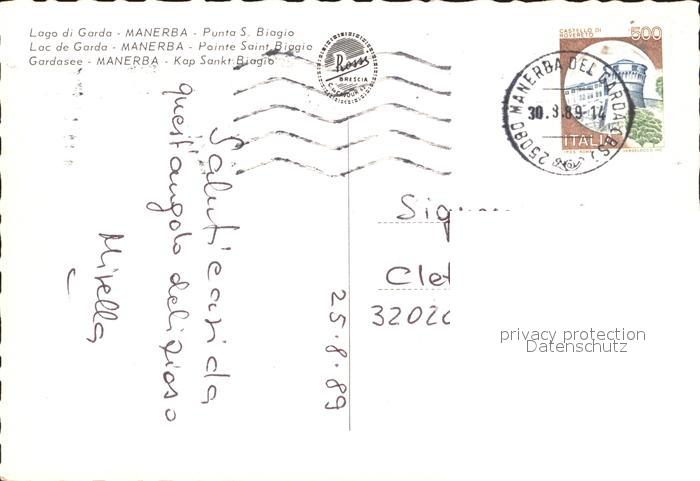 Lago di Garda - MANERBA - Punta S. Biagio
Lac de Garda - MANERBA - Pointe Saint Biagio
Gardasee - MANERBA - Kap Sankt Biagio
Rossi
BRESCIA
CASTELLO DI
ROVERETO
500
ITALIA
25080 MANERBA DEL GARDA (BS)
30.8.89-14
25.8.89
Saluti cari da
quest'angolo delizioso
Mirella
Sig
Clet
3202
privacy protection
Datenschutz